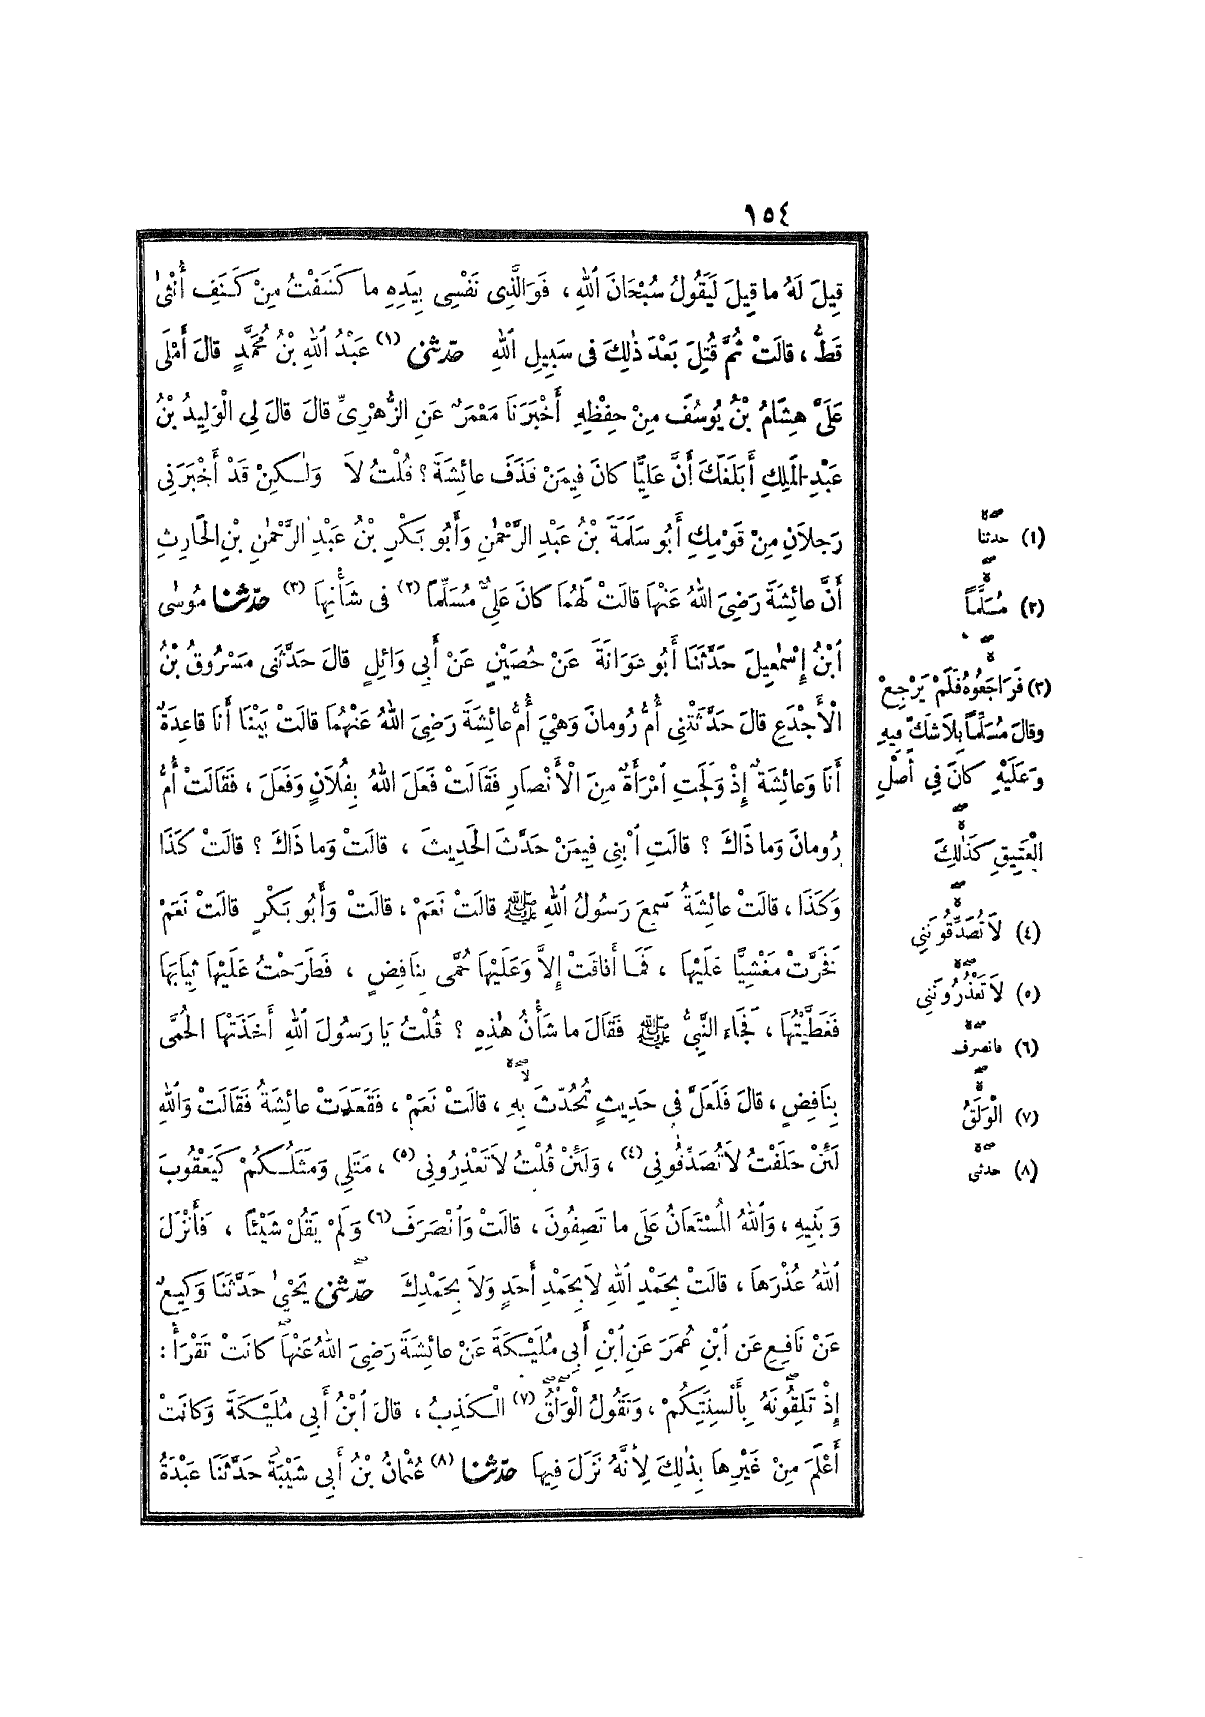 ١٥٤
قِيلَ لَهُ ما قِيلَ لَيَقُولُ سُبْحَانَ اللهِ ، فَوَالَّذِي نَفْسِي بِيَدِهِ ما كَشَفْتُ مِنْ كَنَفِ أُنْثَى
قَطُّ ، قالَتْ ثُمَّ قُتِلَ بَعْدَ ذٰلِكَ فِي سَبِيلِ اللهِ حَدَّثَنِي (١) عَبْدُ اللهِ بْنُ مُحَمَّدٍ قالَ أَمْلَى
عَلَيَّ هِشَامُ بْنُ يُوسُفَ مِنْ حِفْظِهِ أَخْبَرَنَا مَعْمَرٌ عَنِ الزُّهْرِيِّ قالَ قالَ لِي الْوَلِيدُ بْنُ
عَبْدِ المَلِكِ أَبَلَغَكَ أَنَّ عَلِيًّا كانَ فِيمَنْ قَذَفَ عائِشَةَ ؟ قُلْتُ لاَ وَلٰكِنْ قَدْ أَخْبَرَنِي
رَجُلاَنِ مِنْ قَوْمِكِ أَبُو سَلَمَةَ بْنُ عَبْدِ الرَّحْمٰنِ وَأَبُو بَكْرِ بْنُ عَبْدِ الرَّحْمٰنِ بْنِ الحَارِثِ
أَنَّ عائِشَةَ رَضِيَ اللهُ عَنْهَا قالَتْ لَهُمَا كانَ عَلِيٌّ مُسَلِّمًا (٢) فِي شَأْنِهَا (٣) حَدَّثَنَا مُوسٰى
ابْنُ إِسْمٰعِيلَ حَدَّثَنَا أَبُو عَوَانَةَ عَنْ حُصَيْنٍ عَنْ أَبِي وَائِلٍ قالَ حَدَّثَنِي مَسْرُوقُ بْنُ
الْأَجْدَعِ قالَ حَدَّثَتْنِي أُمُّ رُومانَ وَهْيَ أُمُّ عائِشَةَ رَضِيَ اللهُ عَنْهُمَا قالَتْ بَيْنَا أَنَا قاعِدَةٌ
أَنَا وَعائِشَةُ إِذْ وَلَجَتِ امْرَأَةٌ مِنَ الْأَنْصَارِ فَقَالَتْ فَعَلَ اللهُ بِفُلاَنٍ وَفَعَلَ ، فَقَالَتْ أُمُّ
رُومانَ وَما ذَاكَ ؟ قالَتِ ابْنِي فِيمَنْ حَدَّثَ الحَدِيثَ ، قالَتْ وَما ذَاكَ ؟ قالَتْ كَذَا
وَكَذَا ، قالَتْ عائِشَةُ سَمِعَ رَسُولُ اللهِ ﷺ قالَتْ نَعَمْ ، قالَتْ وَأَبُو بَكْرٍ قالَتْ نَعَمْ
فَخَرَّتْ مَغْشِيًّا عَلَيْهَا ، فَمَا أَفاقَتْ إِلاَّ وَعَلَيْهَا حُمَّى بِنَافِضٍ ، فَطَرَحْتُ عَلَيْهَا ثِيَابَهَا
فَغَطَّيْتُهَا ، فَجَاءَ النَّبِيُّ ﷺ فَقَالَ ما شَأْنُ هٰذِهِ ؟ قُلْتُ يَا رَسُولَ اللهِ أَخَذَتْهَا الحُمَّى
بِنَافِضٍ ، قالَ فَلَعَلَّ فِي حَدِيثٍ تُحُدِّثَ بِهِ ، قالَتْ نَعَمْ ، فَقَعَدَتْ عائِشَةُ فَقَالَتْ وَاللهِ
لَئِنْ حَلَفْتُ لاَ تُصَدِّقُونِي (٤) ، وَلَئِنْ قُلْتُ لاَ تَعْذِرُونِي (٥) ، مَثَلِي وَمَثَلُكُمْ كَيَعْقُوبَ
وَبَنِيهِ ، وَاللهُ المُسْتَعَانُ عَلَى ما تَصِفُونَ ، قالَتْ وَانْصَرَفَ (٦) وَلَمْ يَقُلْ شَيْئًا ، فَأَنْزَلَ
اللهُ عُذْرَهَا ، قالَتْ بِحَمْدِ اللهِ لاَ بِحَمْدِ أَحَدٍ وَلاَ بِحَمْدِكَ حَدَّثَنِي يَحْيٰى حَدَّثَنَا وَكِيعٌ
عَنْ نَافِعِ عَنِ ابْنِ عُمَرَ عَنِ ابْنِ أَبِي مُلَيْكَةَ عَنْ عائِشَةَ رَضِيَ اللهُ عَنْهَا كانَتْ تَقْرَأُ :
إِذْ تَلِقُونَهُ بِأَلْسِنَتِكُمْ ، وَتَقُولُ الْوَلْقُ (٧) الْكَذِبُ ، قالَ ابْنُ أَبِي مُلَيْكَةَ وَكانَتْ
أَعْلَمَ مِنْ غَيْرِهَا بِذٰلِكَ لِأَنَّهُ نَزَلَ فِيهَا حَدَّثَنَا (٨) عُثْمَانُ بْنُ أَبِي شَيْبَةَ حَدَّثَنَا عَبْدَةُ
(١) حدثنا
(٢) مُسَلَّمًا
(٣) فَرَاجَعُوهُ فَلَمْ يَرْجِعْ
وقالَ مُسَلِّمًا بِلاَ شَكٍّ فِيهِ
وَعَلَيْهِ كانَ فِي أَصْلِ
الْعَتِيقِ كَذٰلِكَ
(٤) لاَ تُصَدِّقُونَنِي
(٥) لاَ تَعْذُرُونَنِي
(٦) فانصرف
(٧) الْوَلَقُ
(٨) حدثنى